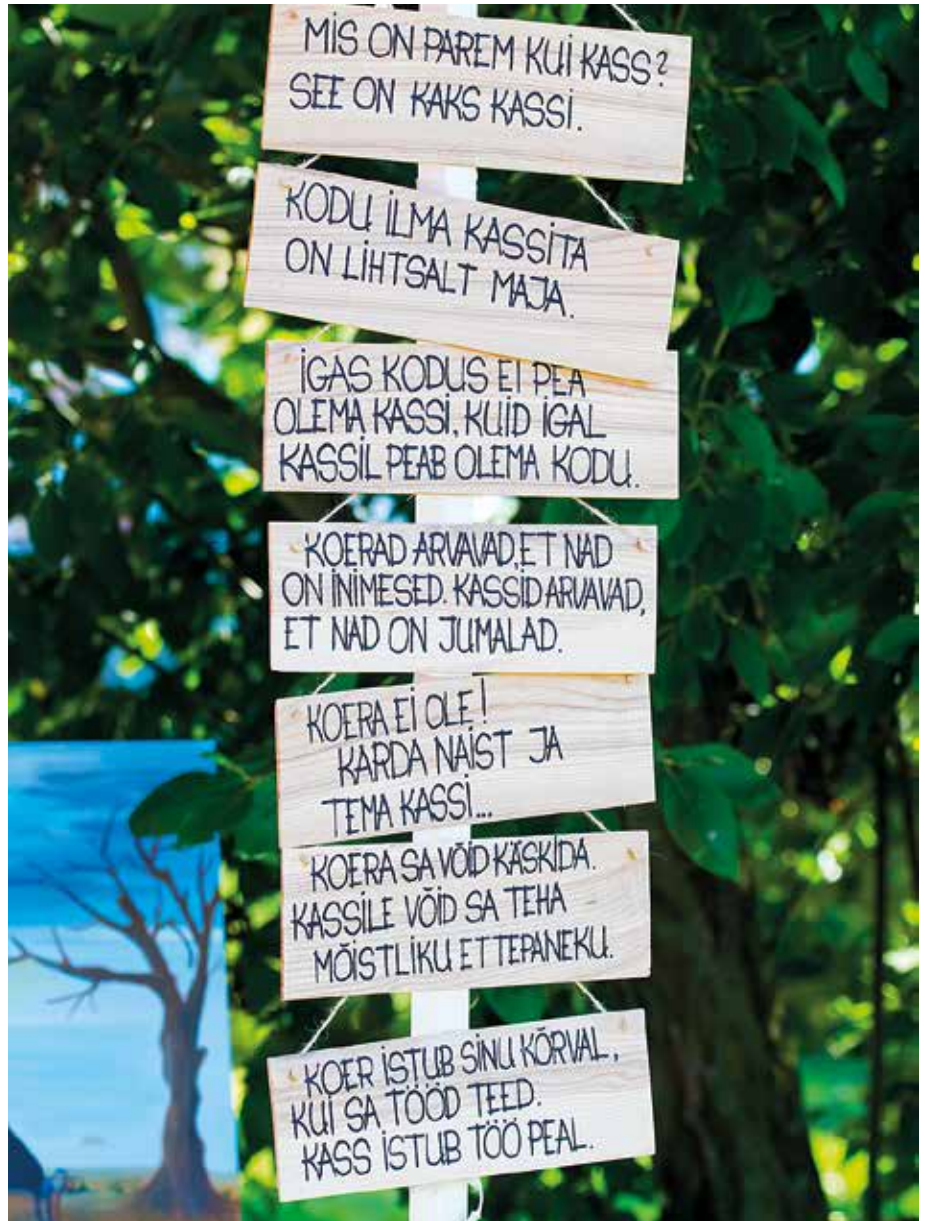 MIS ON PAREM KUI KASS?
SEE ON KAKS KASSI.
KODU ILMA KASSITA
ON LIHTSALT MAJA.
IGAS KODUS EI PEA
OLEMA KASSI, KUID IGAL
KASSIL PEAB OLEMA KODU.
KOERAD ARVAVAD, ET NAD
ON INIMESED. KASSID ARVAVAD,
ET NAD ON JUMALAD.
KOERA EI OLE!
KARDA NAIST JA
TEMA KASSI...
KOERA SA VÕID KÄSKIDA.
KASSILE VÕID SA TEHA
MÕISTLIKU ETTEPANEKU.
KOER ISTUB SINU KÕRVAL,
KUI SA TÖÖD TEED.
KASS ISTUB TÖÖ PEAL.